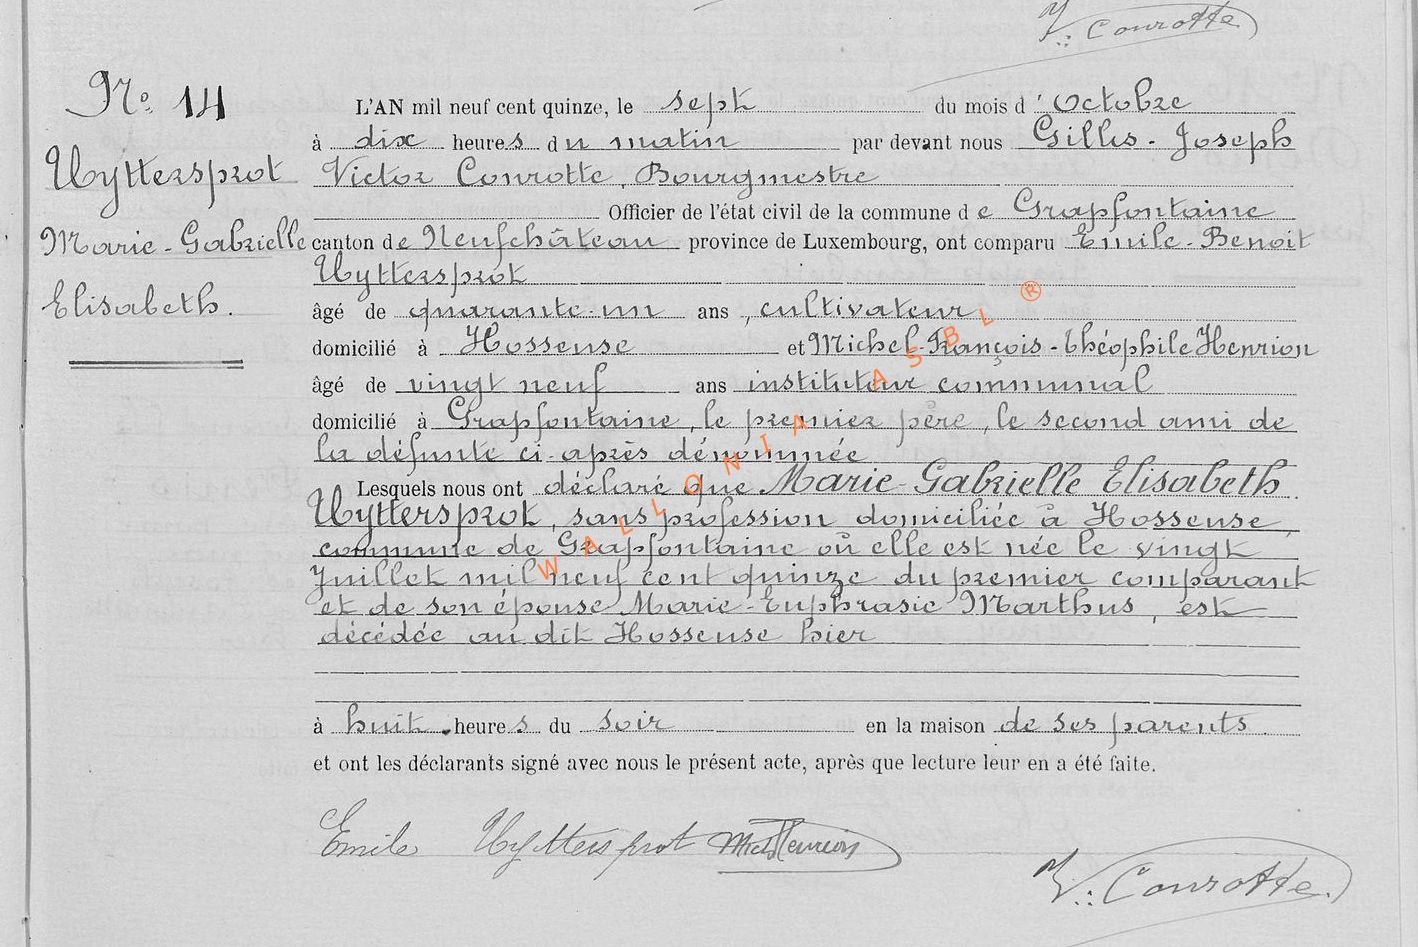 V: Conrotte
No. 14
Uyttersprot
Marie-Gabrielle
Elisabeth.
L'AN mil neuf cent quinze, le sept du mois d'Octobre
à dix heures du matin par devant nous Gilles-Joseph
Victor Conrotte, Bourgmestre
Officier de l'état civil de la commune de Grapfontaine
canton de Neufchâteau province de Luxembourg, ont comparu Emile-Benoit
Uyttersprot
âgé de quarante-un ans, cultivateur
domicilié à Hosseuse et Michel-François-Théophile Henrion
âgé de vingt neuf ans instituteur communal
domicilié à Grapfontaine, le premier père, le second ami de
la défunte ci-après dénommée
Lesquels nous ont déclaré que Marie-Gabrielle Elisabeth
Uyttersprot, sans profession domiciliée à Hosseuse,
commune de Grapfontaine où elle est née le vingt
Juillet mil neuf cent quinze du premier comparant
et de son épouse Marie-Euphrasie Marthus, est
décédée au dit Hosseuse hier
à huit heures du soir en la maison de ses parents.
et ont les déclarants signé avec nous le présent acte, après que lecture leur en a été faite.
Emile Uyttersprot Mich Henrion
V: Conrotte.
WALLONIA ASBL ®